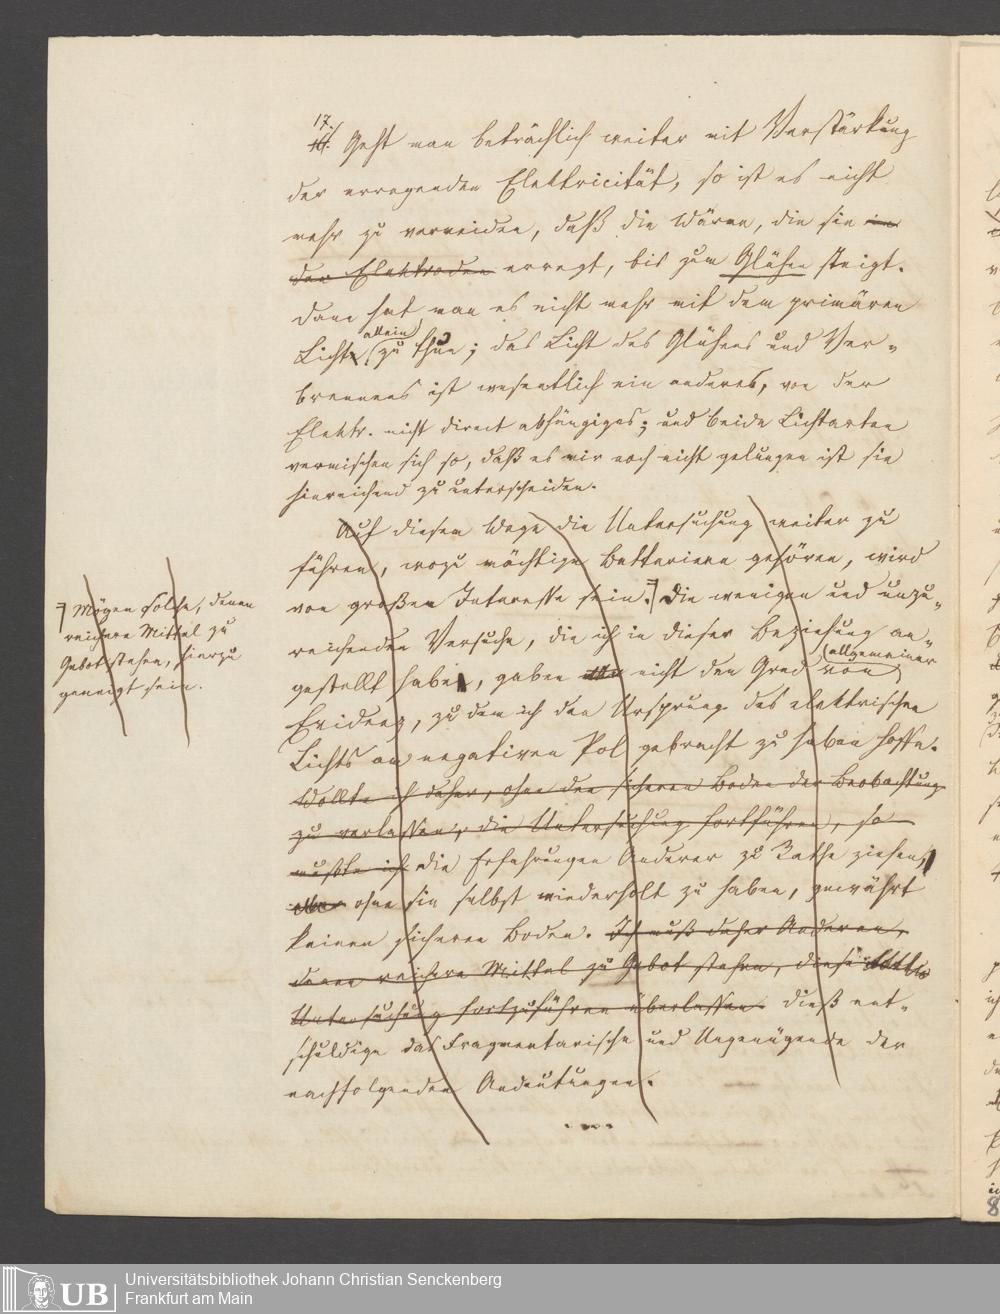 17.
Geht man beträchlich weiter mit Verstärkung
der erregenden Elektricität, so ist es nicht
mehr zu vermeiden, daß die Wärme, die sie in
den Elektroden erregt, bis zum Glühen steigt.
Dann hat man es nicht mehr mit dem primären
allein
Licht zu thun; das Licht des Glühens und Ver-
brennens ist wesentlich ein anderes, von der
Elektr. nicht direct abhängiges; und beide Lichtarten
vermischen sich so, daß es mir noch nicht gelungen ist sie
hinreichend zu unterscheiden.
Auf diesem Wege die Untersuchung weiter zu
führen, wozu mächtige Batterieen gehören, wird
von großem Interesse sein. Die wenigen und unzu-
reichenden Versuche, die ich in dieser Beziehung an-
gestellt habe, gaben nicht den Grad von
allgemeiner
Evidenz, zu dem ich den Ursprung des elektrischen
Lichts am negativen Pol gebracht zu haben hoffe.
Wollte ich daher, ohne den sicheren Boden der Beobachtung
zu verlassen, die Untersuchung fortführen, so
mußte ich die Erfahrungen Anderer zu Rathe ziehen,
ohne sie selbst wiederholt zu haben, gewährt
keinen sicheren Boden. Ich muß daher Anderen,
denen reichere Mittel zu Gebot stehen, diese
Untersuchung fortzuführen überlassen. Dieß ent-
schuldige das Fragmentarische und Ungenügende der
nachfolgenden Andeutungen.
Mögen solche, denen
reichere Mittel zu
Gebot stehen, hierzu
geneigt sein.
UB
Universitätsbibliothek Johann Christian Senckenberg
Frankfurt am Main